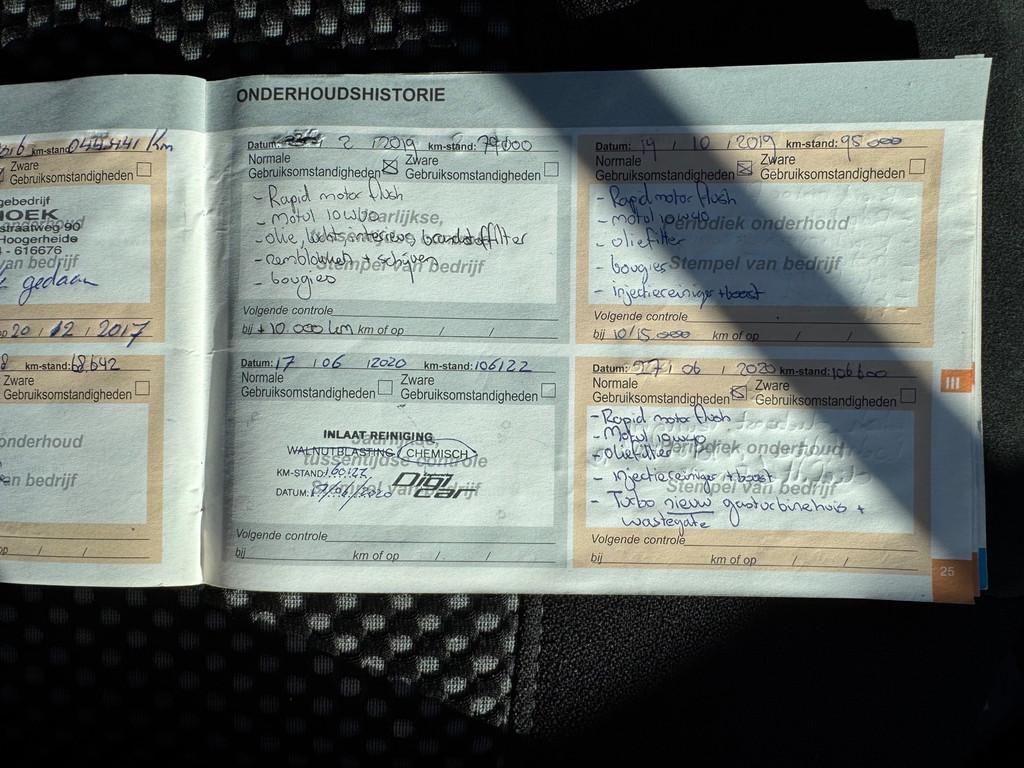 km-stand: 044441 Km
Zware
Gebruiksomstandigheden
gebedrijf
HOEK
straatweg 90
Hoogerheide
- 616676
van bedrijf
gedaan
op 20 / 12 / 2017
km-stand: 68.642
Zware
Gebruiksomstandigheden
onderhoud
van bedrijf
ONDERHOUDSHISTORIE
Datum: / 2 / 2019 km-stand: 79000
Normale Zware
Gebruiksomstandigheden Gebruiksomstandigheden
- Rapid motor flush
- Motul 10W40
- olie, lucht, interieur, brandstoffilter
- remblokken + schijven
Stempel van bedrijf
- bougies
Volgende controle
bij + 10.000 km km of op / /
Datum: 14 / 10 / 2019 km-stand: 95000
Normale Zware
Gebruiksomstandigheden Gebruiksomstandigheden
- Rapid motor flush
- motul 10W40
Periodiek onderhoud
- oliefilter
- bougies
Stempel van bedrijf
- injectiereiniger + boost
Volgende controle
bij 10/15.000 km of op / /
Datum: 17 / 06 / 2020 km-stand: 106122
Normale Zware
Gebruiksomstandigheden Gebruiksomstandigheden
INLAAT REINIGING
Jaarlijkse,
WALNUTBLASTING / CHEMISCH
tussentijdse controle
KM-STAND:
Digi
Car
DATUM: 17/06/2020
Stempel van bedrijf
Volgende controle
bij km of op / /
Datum: 27 / 06 / 2020 km-stand: 106600
Normale Zware
Gebruiksomstandigheden Gebruiksomstandigheden
- Rapid motor flush
- Motul 10W40
Periodiek onderhoud
- oliefilter
- Injectiereiniger + boost
Stempel van bedrijf
- Turbo nieuw gasturbinehuis +
wastegate
Volgende controle
bij km of op / /
III
25